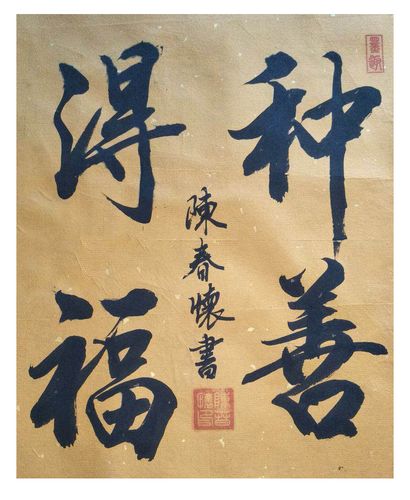 种善
得福
陳春懷書